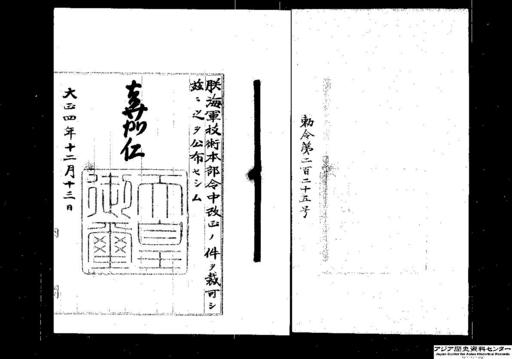 勅令第二百二十五号
朕海軍技術本部令中改正ノ件ヲ裁可シ
茲ニ之ヲ公布セシム
嘉仁
天皇御璽
大正四年十二月十三日
アジア歴史資料センター
Japan Center for Asian Historical Records